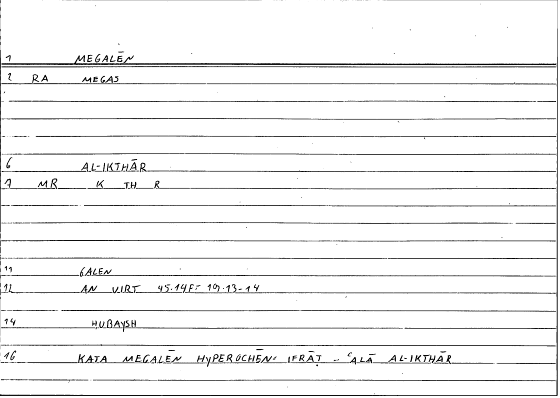 1 MEGALĒN
2 RA MEGAS
6 AL-IKTHĀR
7 MR K TH R
11 GALEN
12 AN VIRT 45.14F= 19.13-14
14 ḤUBAYSH
16 KATA MEGALĒN HYPEROCHĒN: IFRĀṬ - ʿALĀ AL-IKTHĀR